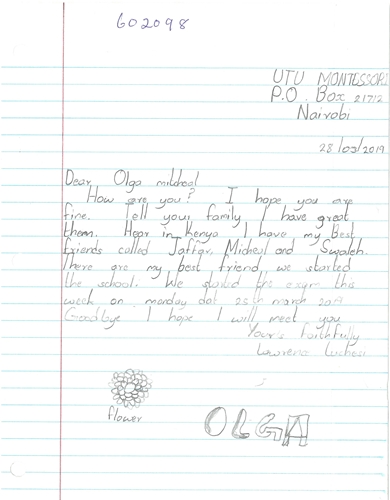 602098
UTU MONTESSORI
P.O. Box 21712
Nairobi
28/03/2019
Dear Olga
How are you? I hope you are
fine. Tell your family I have great
them. Hear in Kenya I have my Best
friends called Jaffar, and Swaleh.
There are my best friend, we started
the school. We started exam this
week on monday dat 25th march 2019
Goodbye I hope I will meet you
Your's faithfully
Lawrence
flower
OLGA